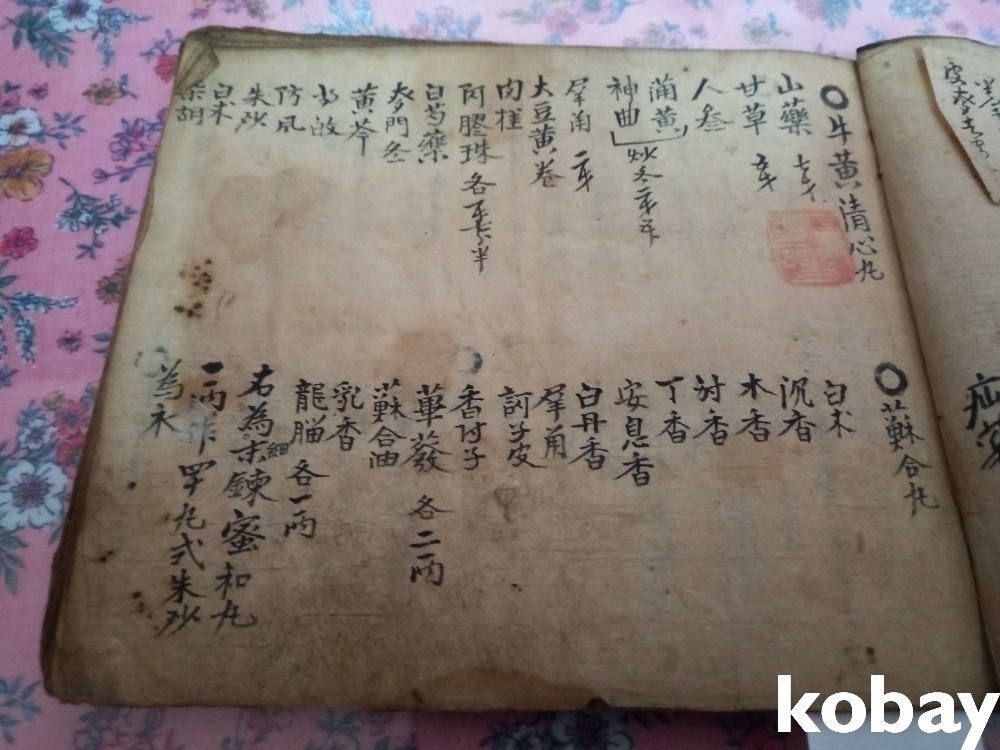 牛黃淸心丸
山藥
甘草
人參
蒲黃
神曲 炒各二戔五卜
犀角 二戔
大豆黃卷
肉桂
阿膠珠 各
白芍藥
麥門冬
黃芩
防風
朱砂
白朮
柴胡
蘇合丸
白朮
沉香
木香
丁香
安息香
白丹香
犀角
訶子皮
香附子
蓽發 各二兩
蘇合油
乳香
龍腦 各一兩
右為末細鍊蜜和丸
一兩作四十丸式朱砂
為衣
kobay